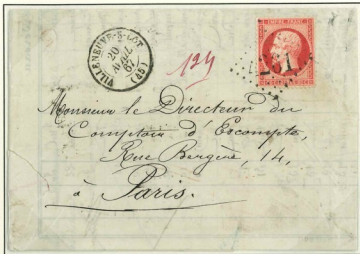 VILLENEUVE-S-LOT
20
AVRIL
67
(45)
124
EMPIRE FRANC
Monsieur le Directeur du
Comptoir d'Escompte,
Rue Bergère, 14,
à Paris.